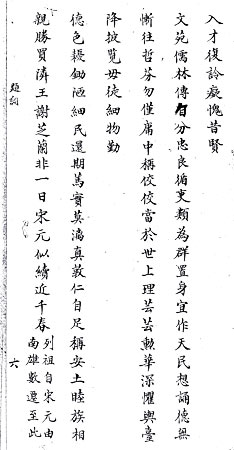 入才復詅癡愧昔賢
文苑儒林傳自分忠良循吏類為群置身宜作天民想誦德無
慚往哲芬勿僅庸中稱佼佼當於世上理芸芸勲華深懼輿臺
降披覽毋徒細物勤
德色耰鋤陋細民還期篤實莫漓真敦仁自足稱安土睦族相
親勝買隣王謝芝蘭非一日宋元似續近千春
列祖自宋元由
南雄數遷至此
題詞
六